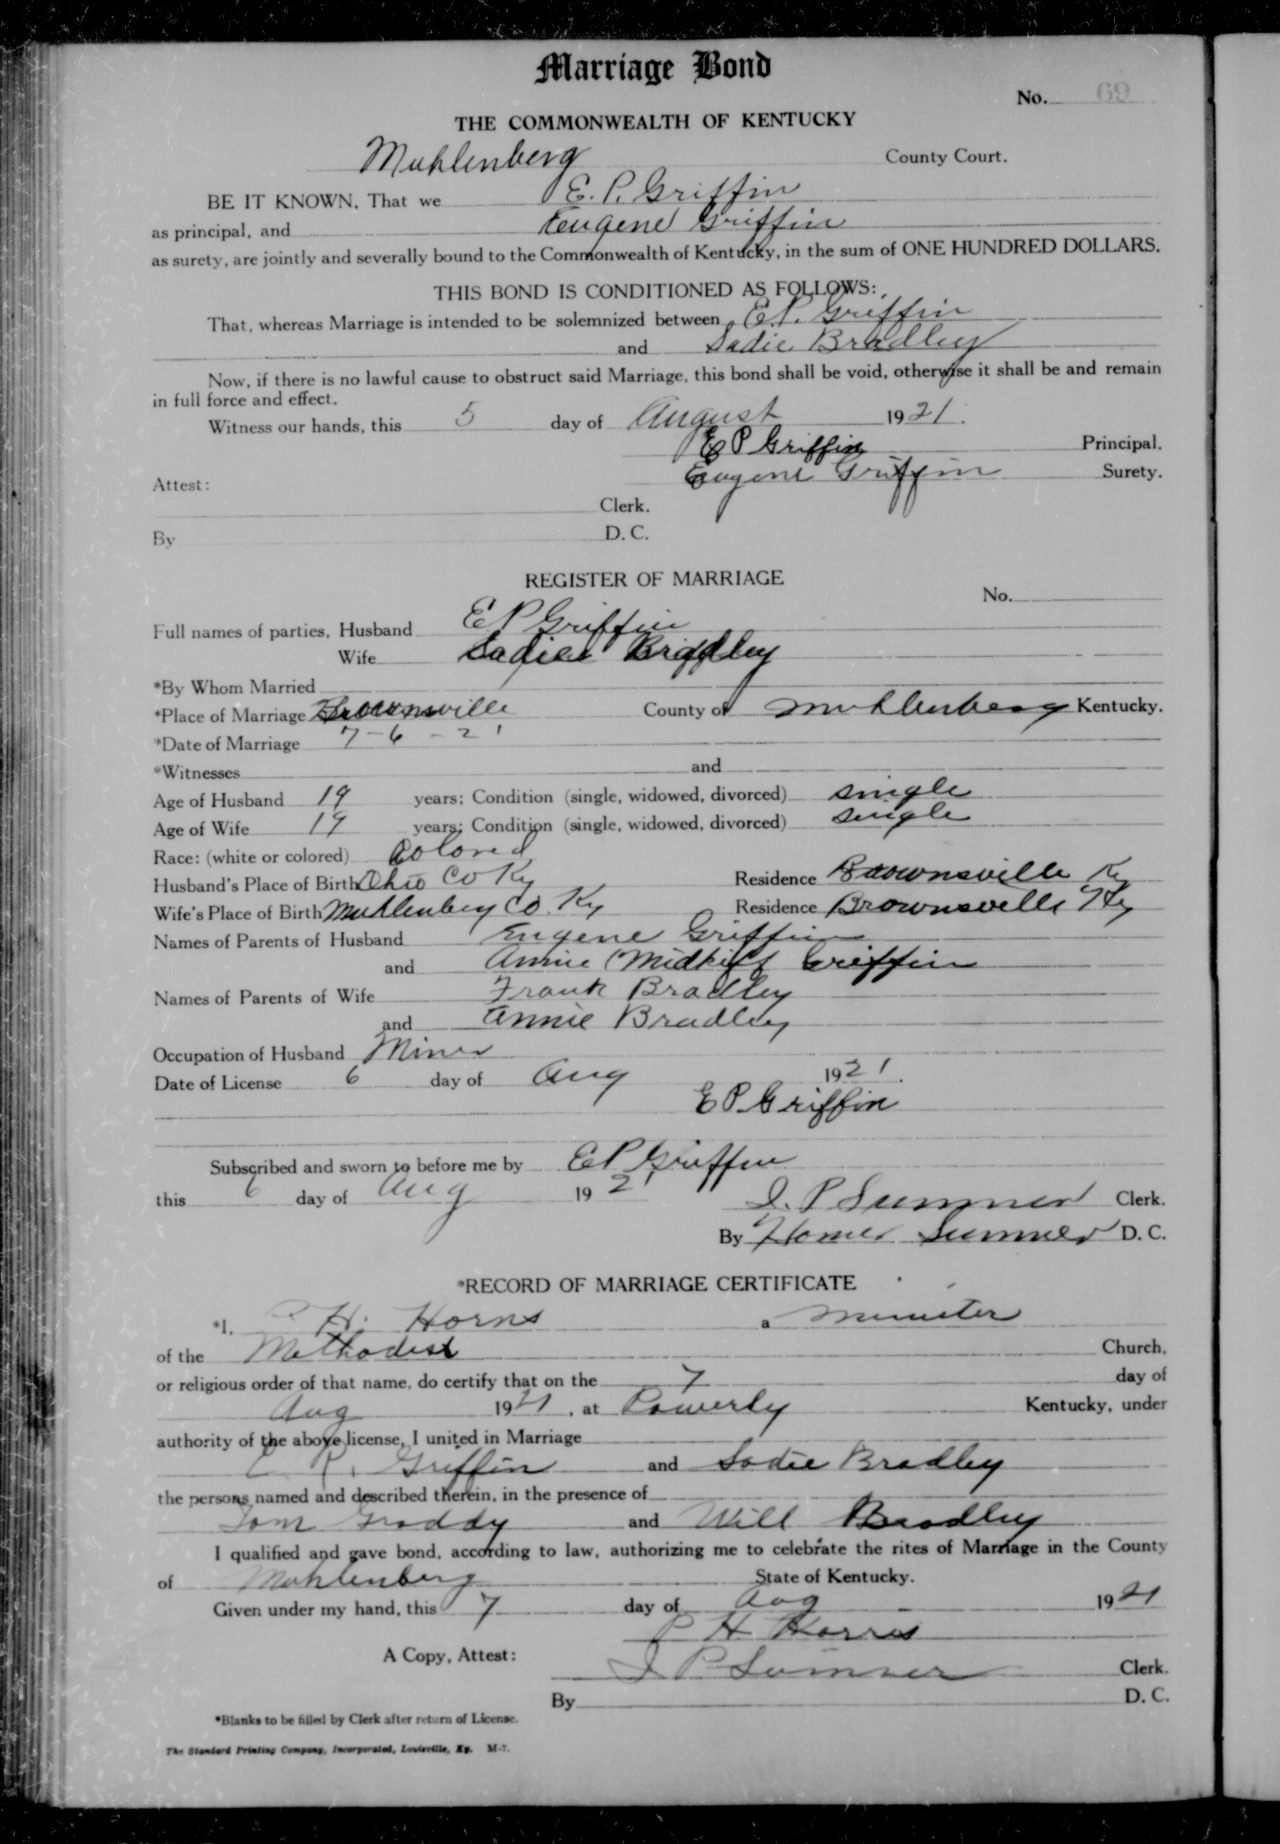 Marriage Bond
No. 69
THE COMMONWEALTH OF KENTUCKY
Muhlenberg County Court.
BE IT KNOWN, That we E. P. Griffin
as principal, and Eugene Griffin
as surety, are jointly and severally bound to the Commonwealth of Kentucky, in the sum of ONE HUNDRED DOLLARS.
THIS BOND IS CONDITIONED AS FOLLOWS:
That, whereas Marriage is intended to be solemnized between E. P. Griffin
and Sadie Bradley
Now, if there is no lawful cause to obstruct said Marriage, this bond shall be void, otherwise it shall be and remain
in full force and effect.
Witness our hands, this 5 day of August 1921.
E P Griffin Principal.
Eugene Griffin Surety.
Attest:
Clerk.
By D. C.
REGISTER OF MARRIAGE
No.
Full names of parties, Husband E P Griffin
Wife Sadie Bradley
*By Whom Married
*Place of Marriage Brownsville County of Muhlenberg Kentucky.
*Date of Marriage 7-6-21
*Witnesses and
Age of Husband 19 years; Condition (single, widowed, divorced) single
Age of Wife 19 years; Condition (single, widowed, divorced) single
Race: (white or colored) Colored
Husband's Place of Birth Ohio Co Ky Residence Brownsville Ky
Wife's Place of Birth Muhlenberg Co. Ky Residence Brownsville Ky
Names of Parents of Husband Eugene Griffin
and Annie (Midkiff Griffin
Names of Parents of Wife Frank Bradley
and Annie Bradley
Occupation of Husband Miner
Date of License 6 day of Aug 1921.
E P Griffin
Subscribed and sworn to before me by E P Griffin
this 6 day of Aug 1921
J. P Sumner Clerk.
By Homer Sumner D. C.
*RECORD OF MARRIAGE CERTIFICATE
*I, H. a Minister
of the Methodist Church,
or religious order of that name, do certify that on the 7 day of
Aug 1921, at Powerly Kentucky, under
authority of the above license, I united in Marriage
E. P. Griffin and Sadie Bradley
the persons named and described therein, in the presence of
Tom and Will Bradley
I qualified and gave bond, according to law, authorizing me to celebrate the rites of Marriage in the County
of Muhlenberg State of Kentucky.
Given under my hand, this 7 day of Aug 1921
P H
A Copy, Attest: J P Sumner Clerk.
By D. C.
*Blanks to be filled by Clerk after return of License.
The Standard Printing Company, Incorporated, Louisville, Ky. M-7.